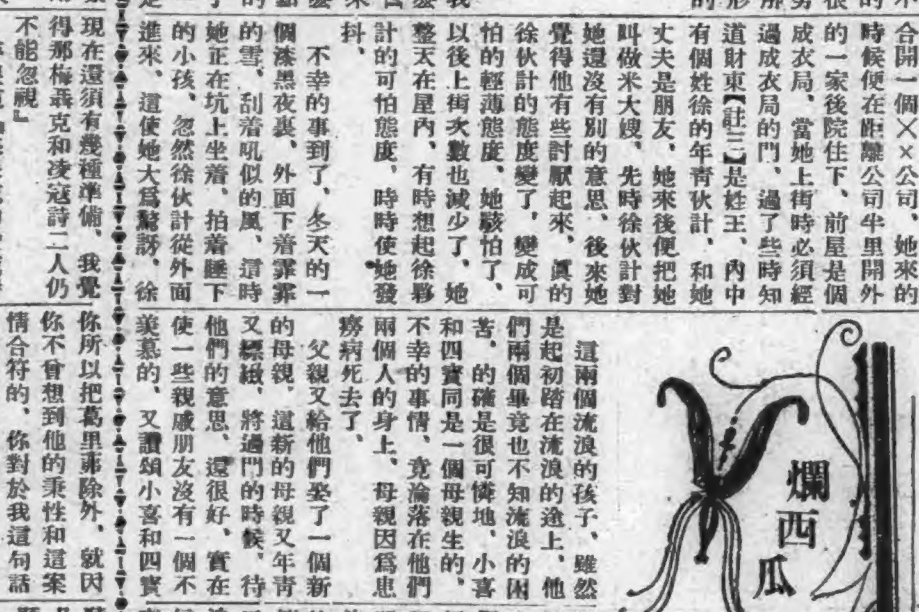 合開一個××公司、她來的
時候便在距離公司半里開外
的一家後院住下、前屋是個
成衣局、當她上街時必須經
過成衣局的門、過了些時知
道財東【註三】是姓王、內中
有個姓徐的年青伙計、和她
丈夫是朋友、她來後便把她
叫做米大嫂、先時徐伙計對
她還沒有別的意思、後來她
覺得他有些討厭起來、眞的
徐伙計的態度變了，變成可
怕的輕薄態度、她駭怕了、
以後上街次數也減少了、她
整天在屋內、有時想起徐夥
計的可怕態度、時時使她發
抖、
不幸的事到了、冬天的一
個漆黑夜裏、外面下着霏霏
的雪、刮着吼似的風、這時
她正在坑上坐着、拍着睡下
的小孩、忽然徐伙計從外面
進來、這使她大爲驚訝、徐
現在還須有幾種準備、我覺
得那梅聶克和凌寇詩二人仍
不能忽視』
爛西瓜
這兩個流浪的孩子、雖然
是起初踏在流浪的途上、他
們兩個畢竟也不知流浪的困
苦、的確是很可憐地、小喜
和四寳同是一個母親生的、
不幸的事情、竟淪落在他們
兩個人的身上、母親因爲患
癆病死去了、
父親又給他們娶了一個新
的母親、這新的母親又年青
又縹緻、將過門的時候、待
他們的意思、還很好、實在
使一些親戚朋友沒有一個不
羡慕的、又讚頌小喜和四寳
你所以把葛里弗除外、就因
你不曾想到他的秉性和這案
情合符的、你對於我這句話